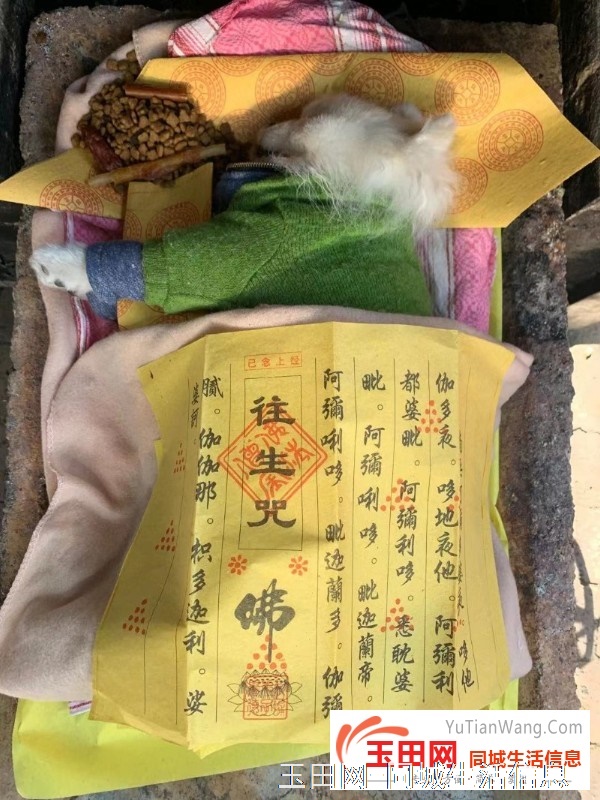 哆他
伽多夜。哆地夜他。阿彌利
都婆毗。阿彌利哆。悉耽婆
毗。阿彌唎哆。毗迦蘭帝。
阿彌唎哆。毗迦蘭多。伽彌
往生咒
佛
膩。伽伽那。枳多迦利。娑
婆訶
YuTianWang.Com
玉田网 同城生活信息
玉田网-同城生活信息